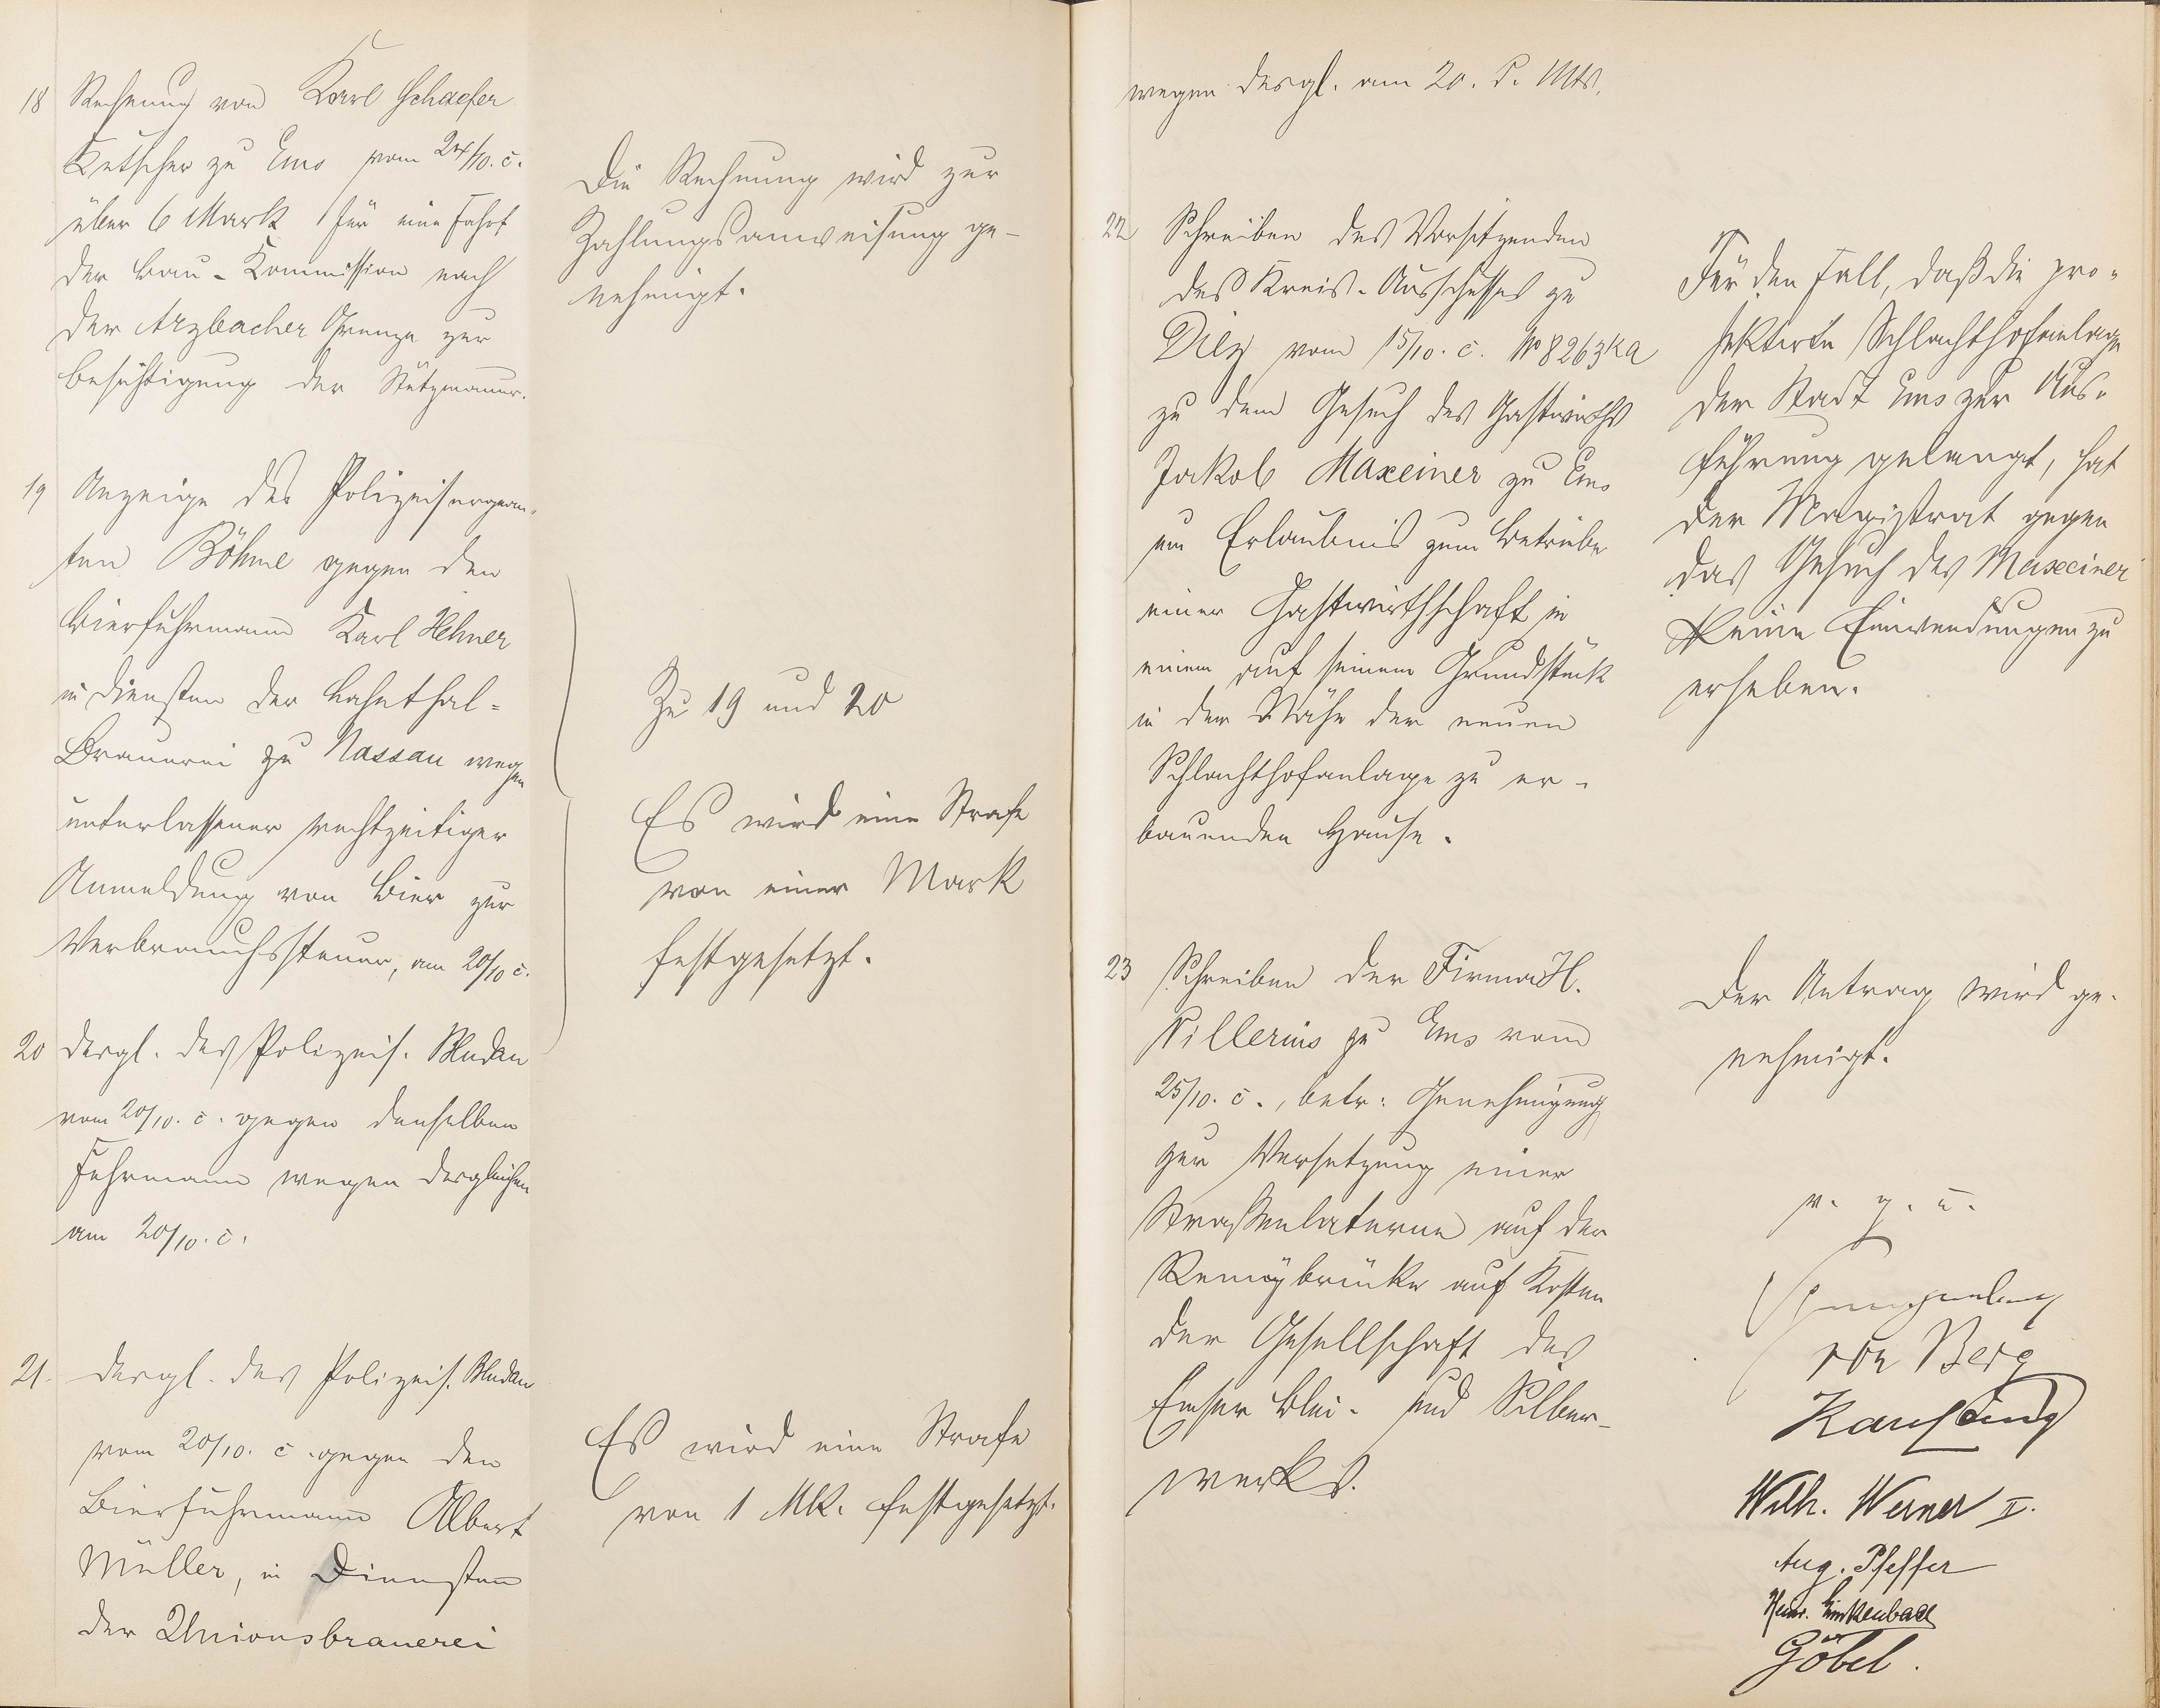 18 Rechnung von Karl Schaefer
Kutscher zu Ems vom 24/10. c.
über 6 Mark für eine Fahrt
der Bau-Kommission nach
der Arzbacher Grenze zur
Besichtigung der Stützmauer.
Die Rechnung wird zur
Zahlungsanweisung ge-
nehmigt.
19 Anzeige des Polizeisergean-
ten Böhme gegen den
Bierfuhrmann Karl Hehner
in Diensten der Lahnthal-
Brauerei zu Nassau wegen
unterlassener rechtzeitiger
Anmeldung von Bier zur
Verbrauchssteuer, am 20/10 c.
20 dergl. des Polizeis.
vom 20/10. c. gegen denselben
Fuhrmann wegen dergleichen
am 20/10. c.
Zu 19 und 20
Es wird eine Strafe
von einer Mark
festgesetzt.
21. dergl. des Polizeis.
vom 20/10. c. gegen den
Bierfuhrmann Albert
Müller, in Diensten
der Unionsbrauerei
Es wird eine Strafe
von 1 Mk. festgesetzt.
wegen dergl. am 20. d. Mts.
22 Schreiben des Vorsitzenden
des Kreis-Ausschusses zu
Diez vom 15/10. c. No 8263 KA
zu dem Gesuch des Gastwirths
Jakob Maxeiner zu Ems
um Erlaubnis zum Betriebe
einer Gastwirthschaft in
einem auf seinem Grundstück
in der Nähe der neuen
Schlachthofanlage zu er-
bauenden Hause.
Für den Fall, daß die pro-
jektirte Schlachthofanlage
der Stadt Ems zur Aus-
führung gelangt, hat
der Magistrat gegen
das Gesuch des Maxeiner
keine Einwendungen zu
erheben.
23 Schreiben der Firma H.
Villerius zu Ems vom
25/10. c., betr: Genehmigung
zur Versetzung einer
Straßenlaterne auf der
Remybrücke auf Kosten
der Gesellschaft des
Emser Blei- und Silber-
werks.
Der Antrag wird ge-
nehmigt.
v. g. u.
von Berg
Wilh. Werner II.
Aug. Pfeffer
Heinr. Linkenbach
Göbel.